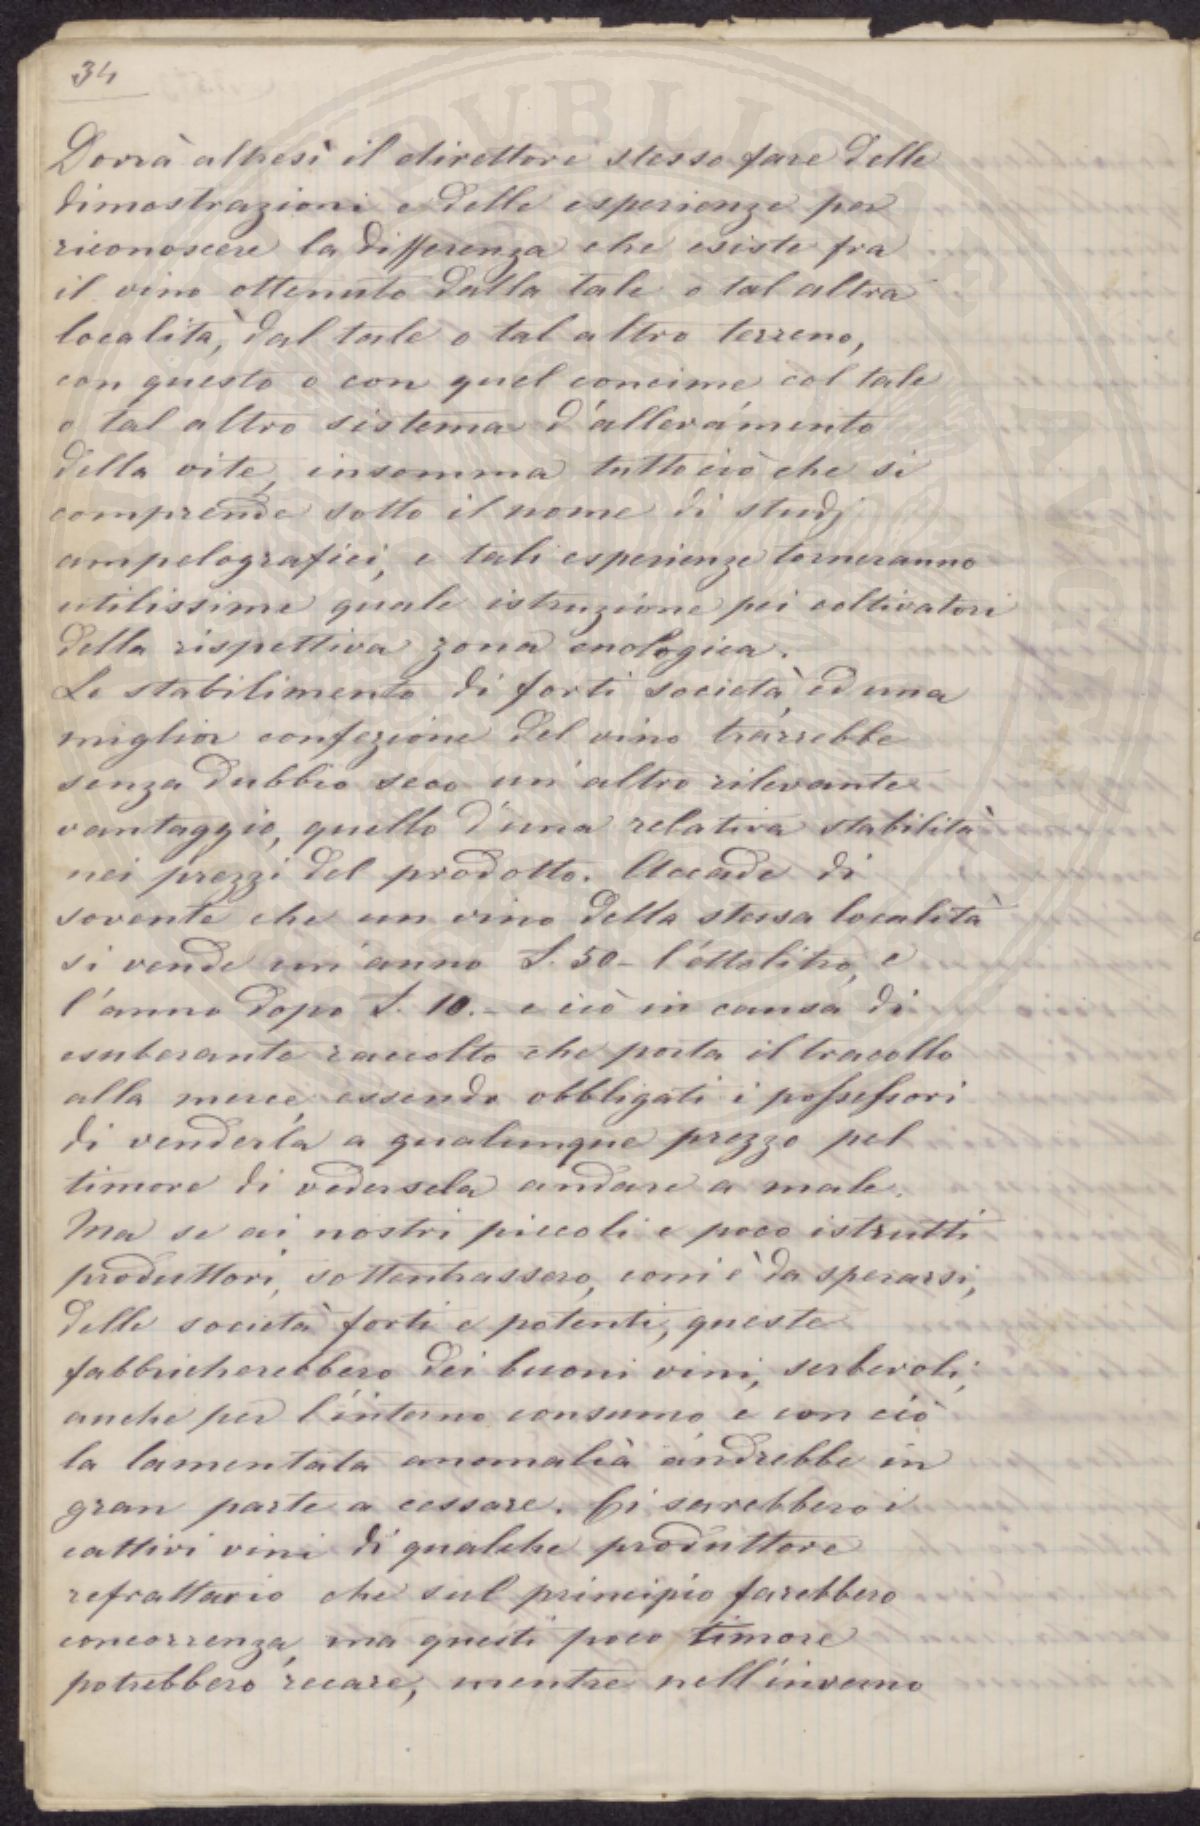 34
Dovrà altresì il direttore stesso fare delle
dimostrazioni e delle esperienze per
riconoscere la differenza che esiste fra
il vino ottenuto dalla tale o tal altra
località, dal tale o tal altro terreno,
con questo o con quel concime col tale
o tal altro sistema d'allevamento
della vite, insomma tutto ciò che si
comprende sotto il nome di studj
ampelografici, e tali esperienze torneranno
utilissime quale istruzione pei coltivatori
della rispettiva zona enologica.
Lo stabilimento di forti società, ed una
miglior confezione del vino trarrebbe
senza dubbio seco un'altro rilevante
vantaggio, quello d'una relativa stabilità
nei prezzi del prodotto. Accade di
sovente che un vino della stessa località
si vende un'anno L. 50 - l'ettolitro, e
l'anno dopo L. 10. - e ciò in causa di
esuberante raccolto che porta il tracollo
alla merce, essendo obbligati i possessori
di venderla a qualunque prezzo pel
timore di vedersela andare a male.
Ma se ai nostri piccoli e poco istrutti
produttori, sottentrassero, com'è da sperarsi,
delle società forti e potenti, queste
fabbricherebbero dei buoni vini, serbevoli,
anche per l'interno consumo e con ciò
la lamentata anomalia andrebbe in
gran parte a cessare. Ci sarebbero i
cattivi vini di qualche produttore
refrattario che sul principio farebbero
concorrenza, ma questi poco timore
potrebbero recare, mentre nell'inverno